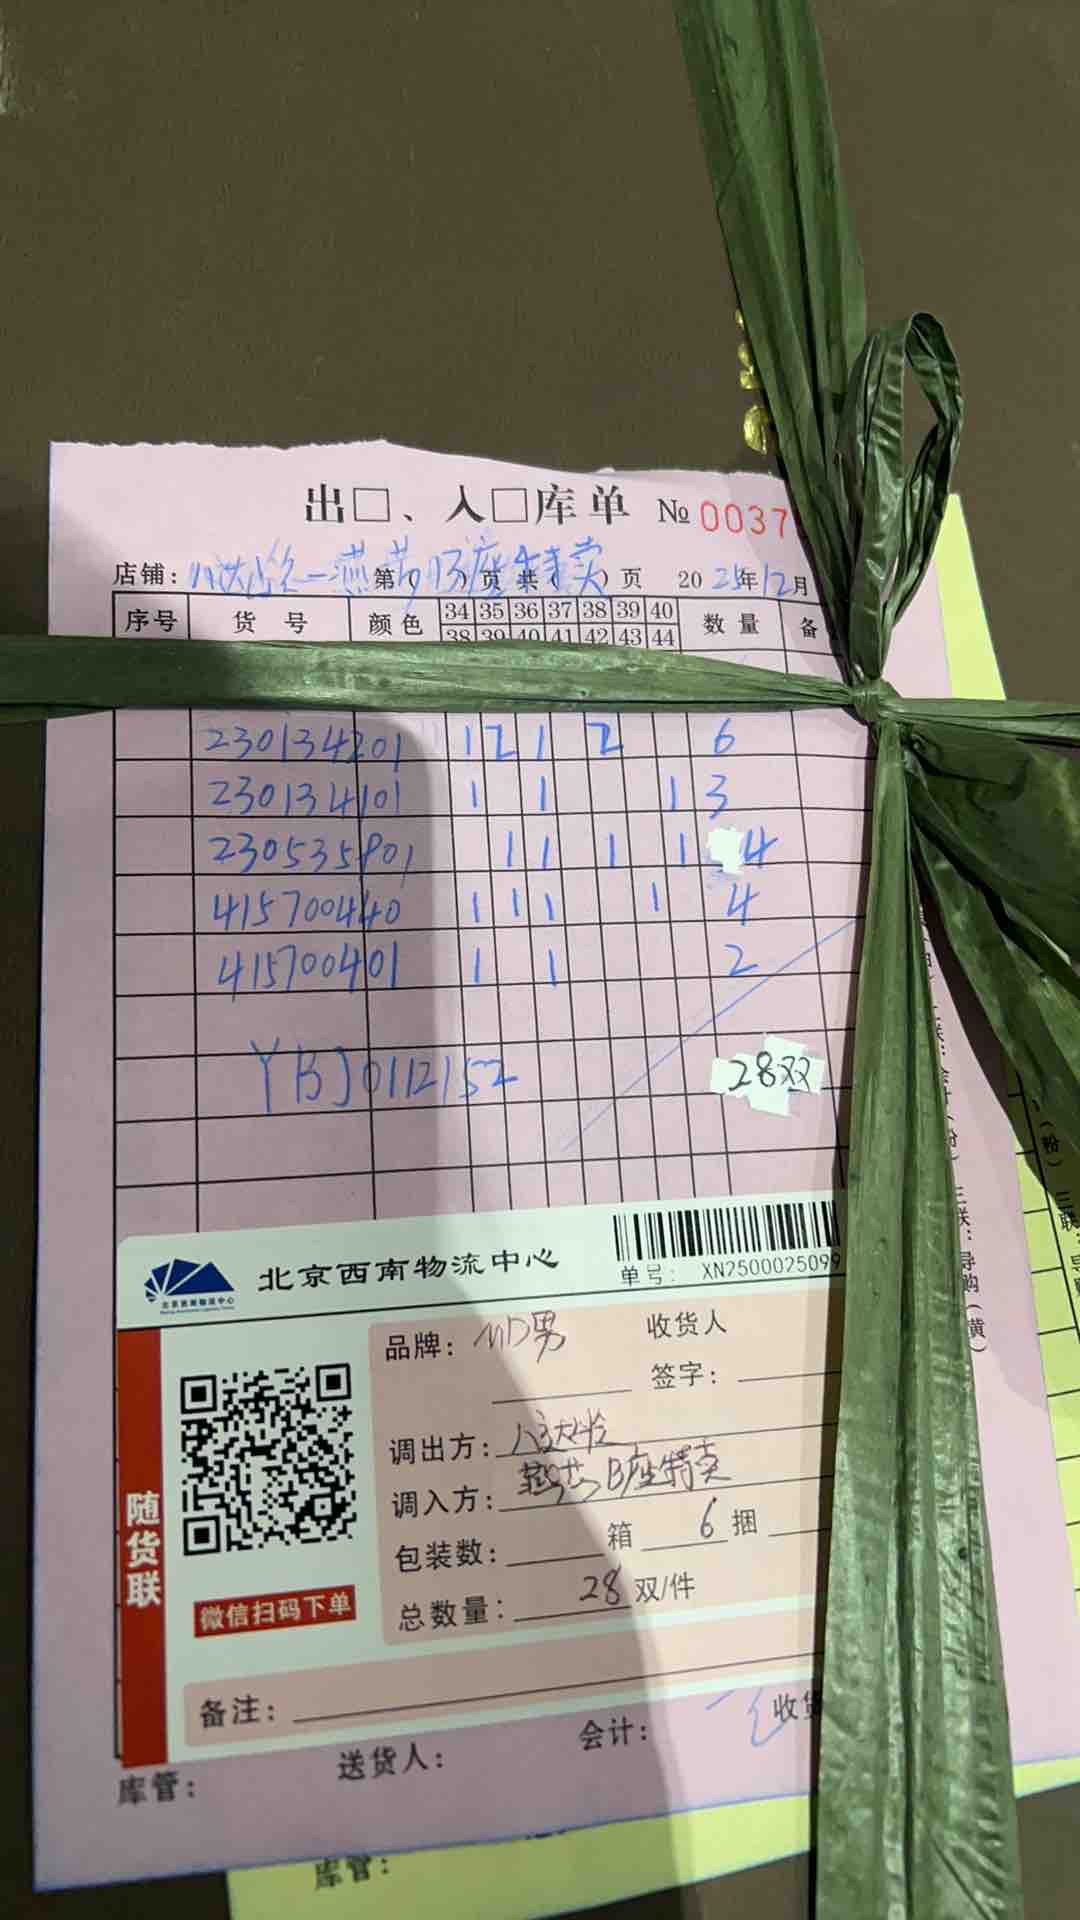 出□、入□库单 № 0037
店铺：八达岭一燕莎B座特卖 第( )页 共( )页 2025年12月
序号 货号 颜色 34 35 36 37 38 39 40 数量 备
38 39 40 41 42 43 44
230134201 1 2 1 2 6
230134101 1 1 1 3
230535901 1 1 1 1 4
415700440 1 1 1 1 4
415700401 1 1 2
YBJ0112152 28双
北京西南物流中心
北京西南物流中心
单号： XN2500025099
随货联
微信扫码下单
品牌：MD男 收货人
签字：
调出方：八达岭
调入方：燕莎B座特卖
包装数： 箱 6 捆
总数量： 28 双/件
备注：
库管： 送货人： 会计： 收货
库管：
三联：导购（黄）
（粉）
三联：导